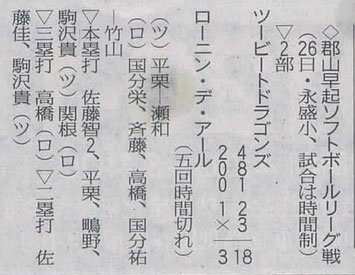 ◇郡山早起ソフトボールリーグ戦
(26日・永盛小、試合は時間制)
▽2部
ツービートドラゴンズ
481 23 18
200 1× 3
ローニン・デ・アール
(五回時間切れ)
(ツ)平栗―瀬和
(ロ)国分栄、斉藤、高橋、国分祐
―竹山
▽本塁打 佐藤智2、平栗、鴫野、
駒沢貴(ツ)関根(ロ)
▽三塁打 高橋(ロ)▽二塁打 佐
藤佳、駒沢貴(ツ)